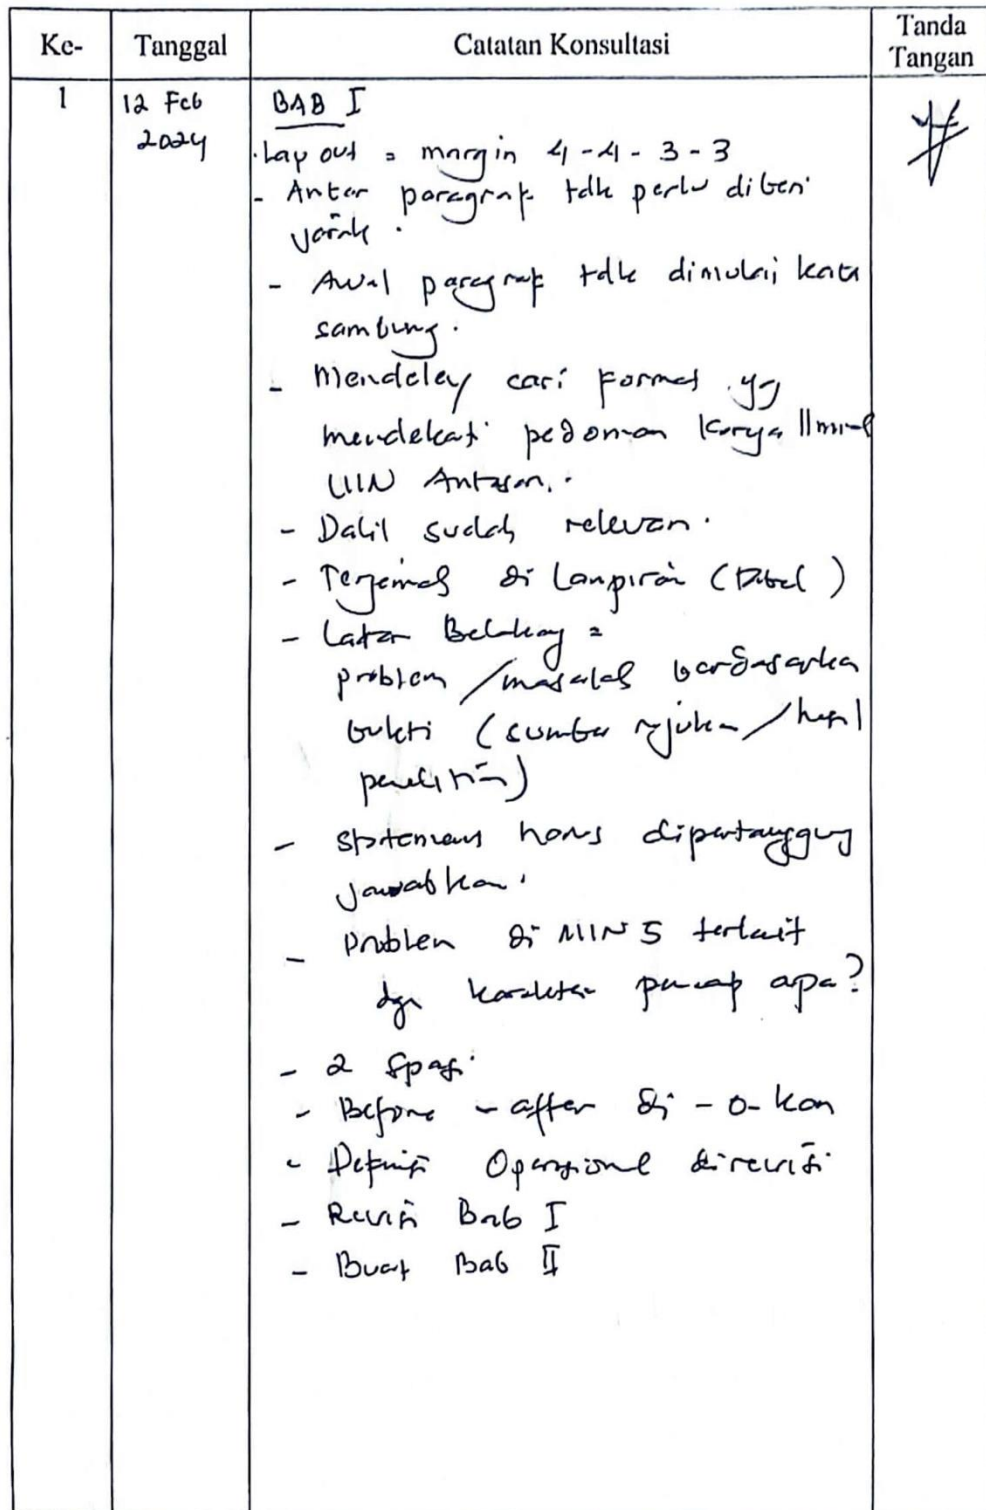 Ke- Tanggal Catatan Konsultasi Tanda Tangan
1 12 Feb 2024 BAB I
. Lay out = margin 4-4-3-3
- Antar paragrap tdk perlu diberi
jarak.
- Awal paragrap tdk dimulai kata
sambung.
- Mendeley cari format yg
mendekati pedoman karya Ilmiah
UIN Antasari.
- Dalil sudah relevan.
- Terjemah di Lampiran (Tabel)
- Latar Belakang =
problem / masalah berdasarkan
bukti (sumber rujukan / hasil
penelitian)
- Statemen harus dipertanggung
jawabkan.
- Problem di MIN 5 terkait
dgn karakter apa?
- 2 Spasi
- Before - after di - 0 - kan
- Definisi Operasional direvisi
- Revisi Bab I
- Buat Bab II